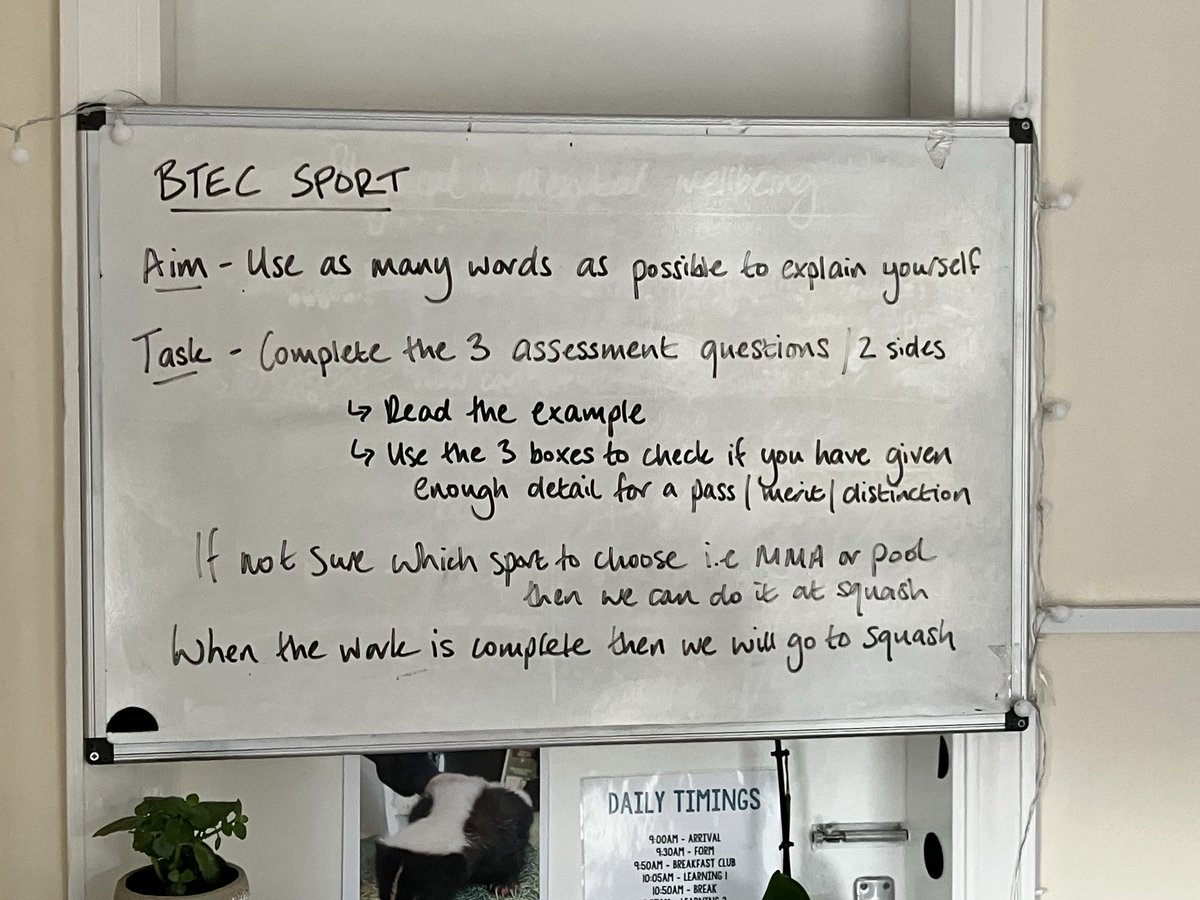 BTEC SPORT
Aim - Use as many words as possible to explain yourself
Task - Complete the 3 assessment questions / 2 sides
↳ Read the example
↳ Use the 3 boxes to check if you have given
enough detail for a pass / merit / distinction
If not sure which sport to choose i.e MMA or pool
then we can do it at squash
When the work is complete then we will go to squash
DAILY TIMINGS
9:00AM - ARRIVAL
9:30AM - FORM
9:50AM - BREAKFAST CLUB
10:05AM - LEARNING 1
10:50AM - BREAK